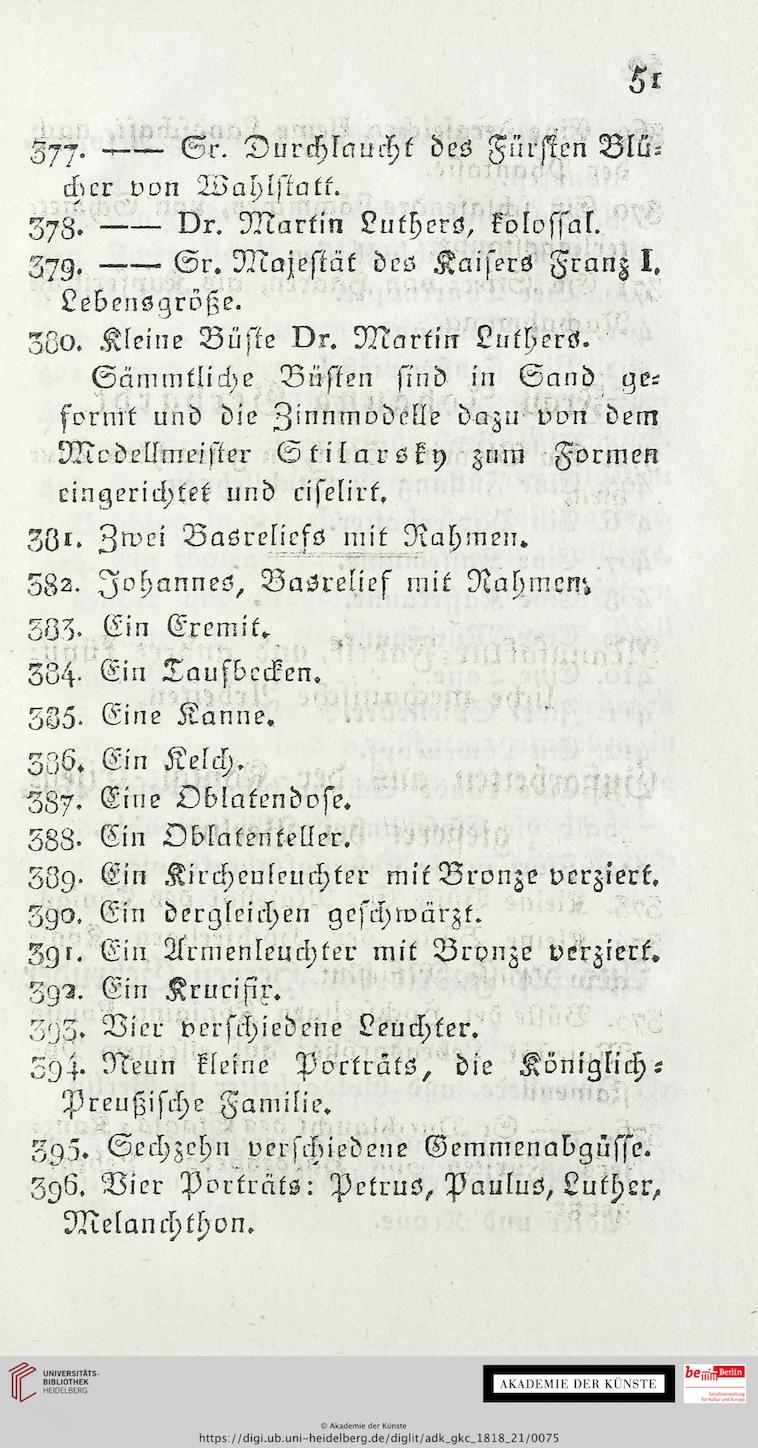 51
377. —— Sr. Durchlaucht des Fürsten Blü-
cher von Wahlstatt.
378. —— Dr. Martin Luthers, kolossal.
379. —— Sr. Majestät des Kaisers Franz I.
Lebensgröße.
380. Kleine Büste Dr. Martin Luthers.
Sämmtliche Büsten sind in Sand ge-
formt und die Zinnmodelle dazu von dem
Modellmeister Stilarsky zum Formen
eingerichtet und ciselirt.
381. Zwei Basreliefs mit Rahmen.
382. Johannes, Basrelief mit Rahmen.
383. Ein Eremit.
384. Ein Taufbecken.
385. Eine Kanne.
386. Ein Kelch.
387. Eine Oblatendose.
388. Ein Oblatenteller.
389. Ein Kirchenleuchter mit Bronze verziert.
390. Ein dergleichen geschwärzt.
391. Ein Armenleuchter mit Bronze verziert.
392. Ein Krucifix.
393. Vier verschiedene Leuchter.
394. Neun kleine Porträts, die Königlich-
Preußische Familie.
395. Sechzehn verschiedene Gemmenabgüsse.
396. Vier Porträts: Petrus, Paulus, Luther,
Melanchthon.
UNIVERSITÄTS-
BIBLIOTHEK
HEIDELBERG
AKADEMIE DER KÜNSTE
be Berlin
Senatsverwaltung
für Kultur und Europa
© Akademie der Künste
https://digi.ub.uni-heidelberg.de/diglit/adk_gkc_1818_21/0075